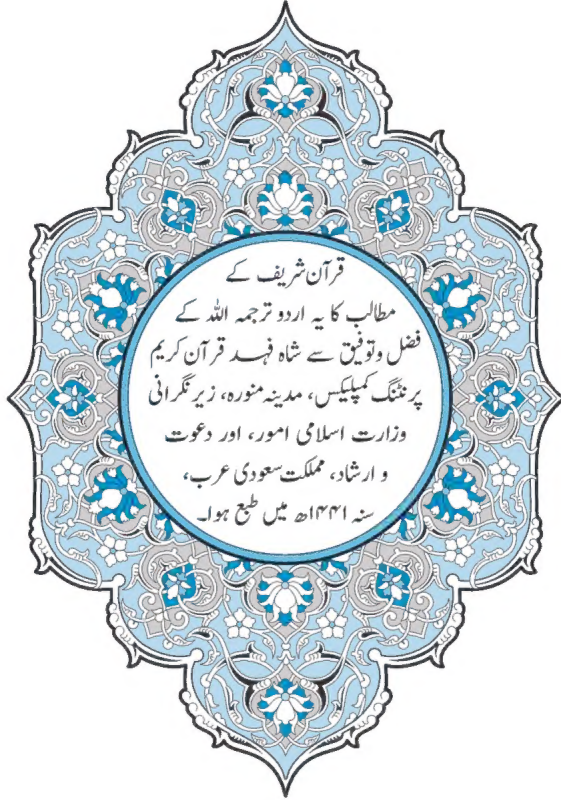 قرآن شریف کے
مطالب کا یہ اردو ترجمہ اللہ کے
فضل وتوفیق سے شاہ فہد قرآن کریم
پرنٹنگ کمپلیکس، مدینہ منورہ، زیر نگرانی
وزارت اسلامی امور، اور دعوت
و ارشاد، مملکت سعودی عرب،
سنہ ۱۴۴۱ھ میں طبع ہوا۔